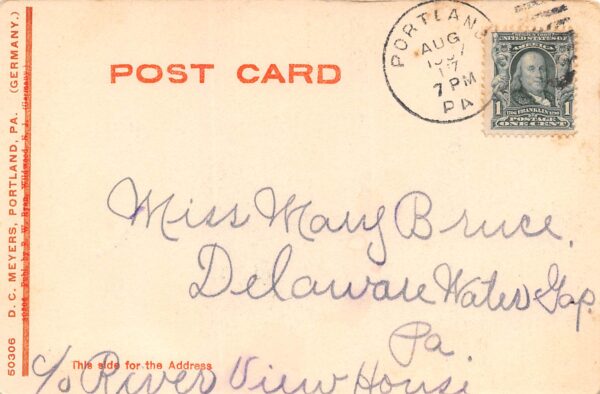 POST CARD
PORTLAND
AUG
17
7 PM
PA
UNITED STATES OF
AMERICA
1 FRANKLIN 1
POSTAGE
ONE CENT
Miss Mary Bruce.
Delaware Water Gap.
Pa.
This side for the Address
c/o River View House
50306 D. C. MEYERS, PORTLAND, PA. (GERMANY.)